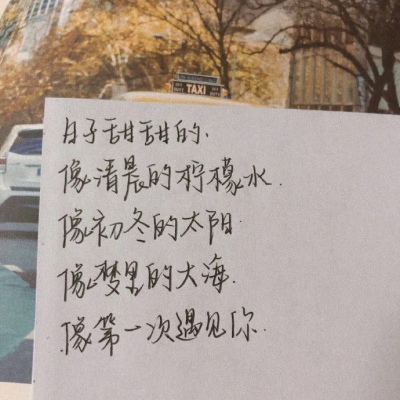 TAXI
日子甜甜的.
像清晨的柠檬水.
像初冬的太阳.
像梦里的大海.
像第一次遇见你.